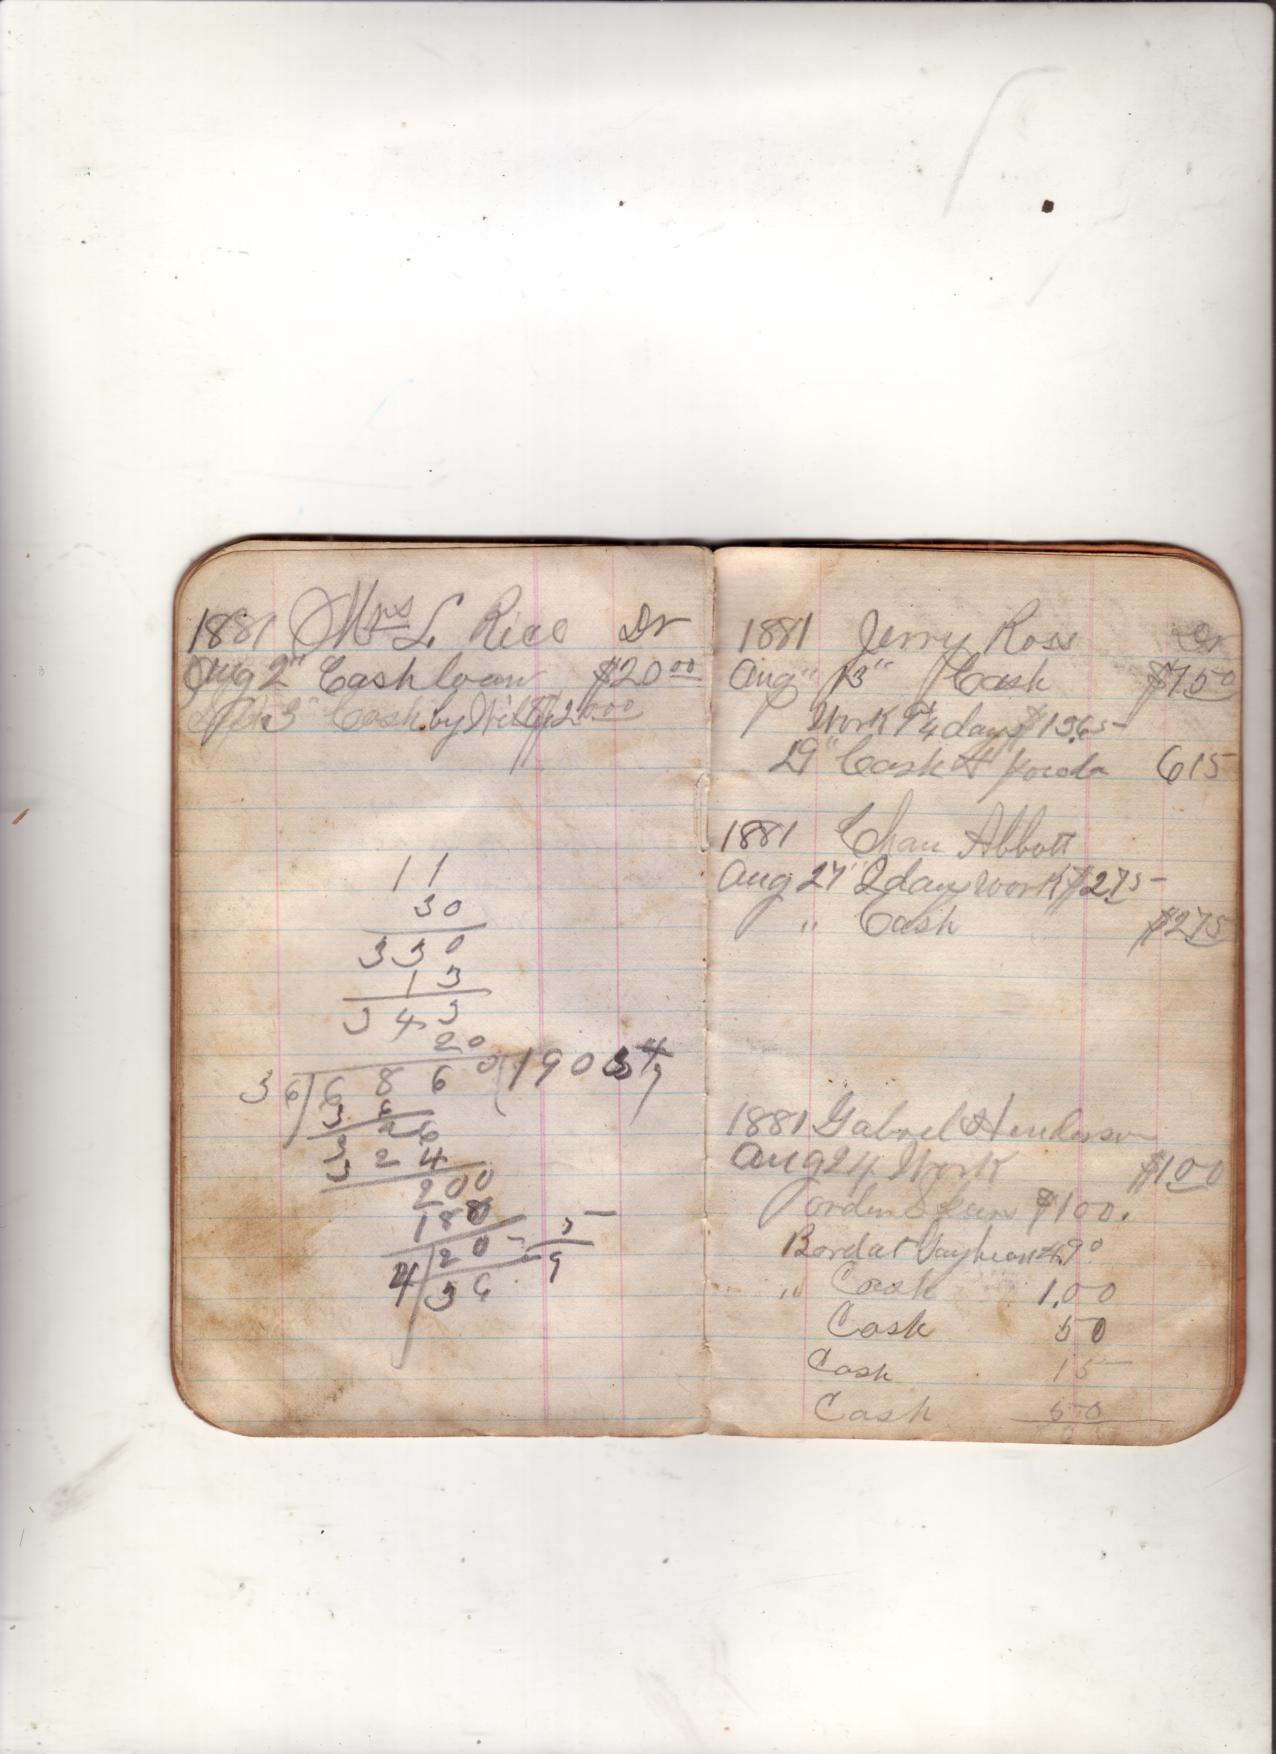 1881 Mrs L. Rice Dr
Aug 2" Cash loan $20 00
3" Cash by 20 00
11
30
330
13
343
20
36) 6860 (190
36
326
324
200
180
4) 20 - 5
36 9
1881 Jerry Ross Cr
Aug" 13" Cash $7 50
Work days $13.65
29" Cash 6 15
1881 Abbott
Aug 27" 2 days work $2 75
" Cash $2 75
1881 Gabriel Henderson
Aug 24 Work $1 00
$1 00.
Bord at 4.90
" Cash 1.00
Cash 50
Cash 15
Cash 50